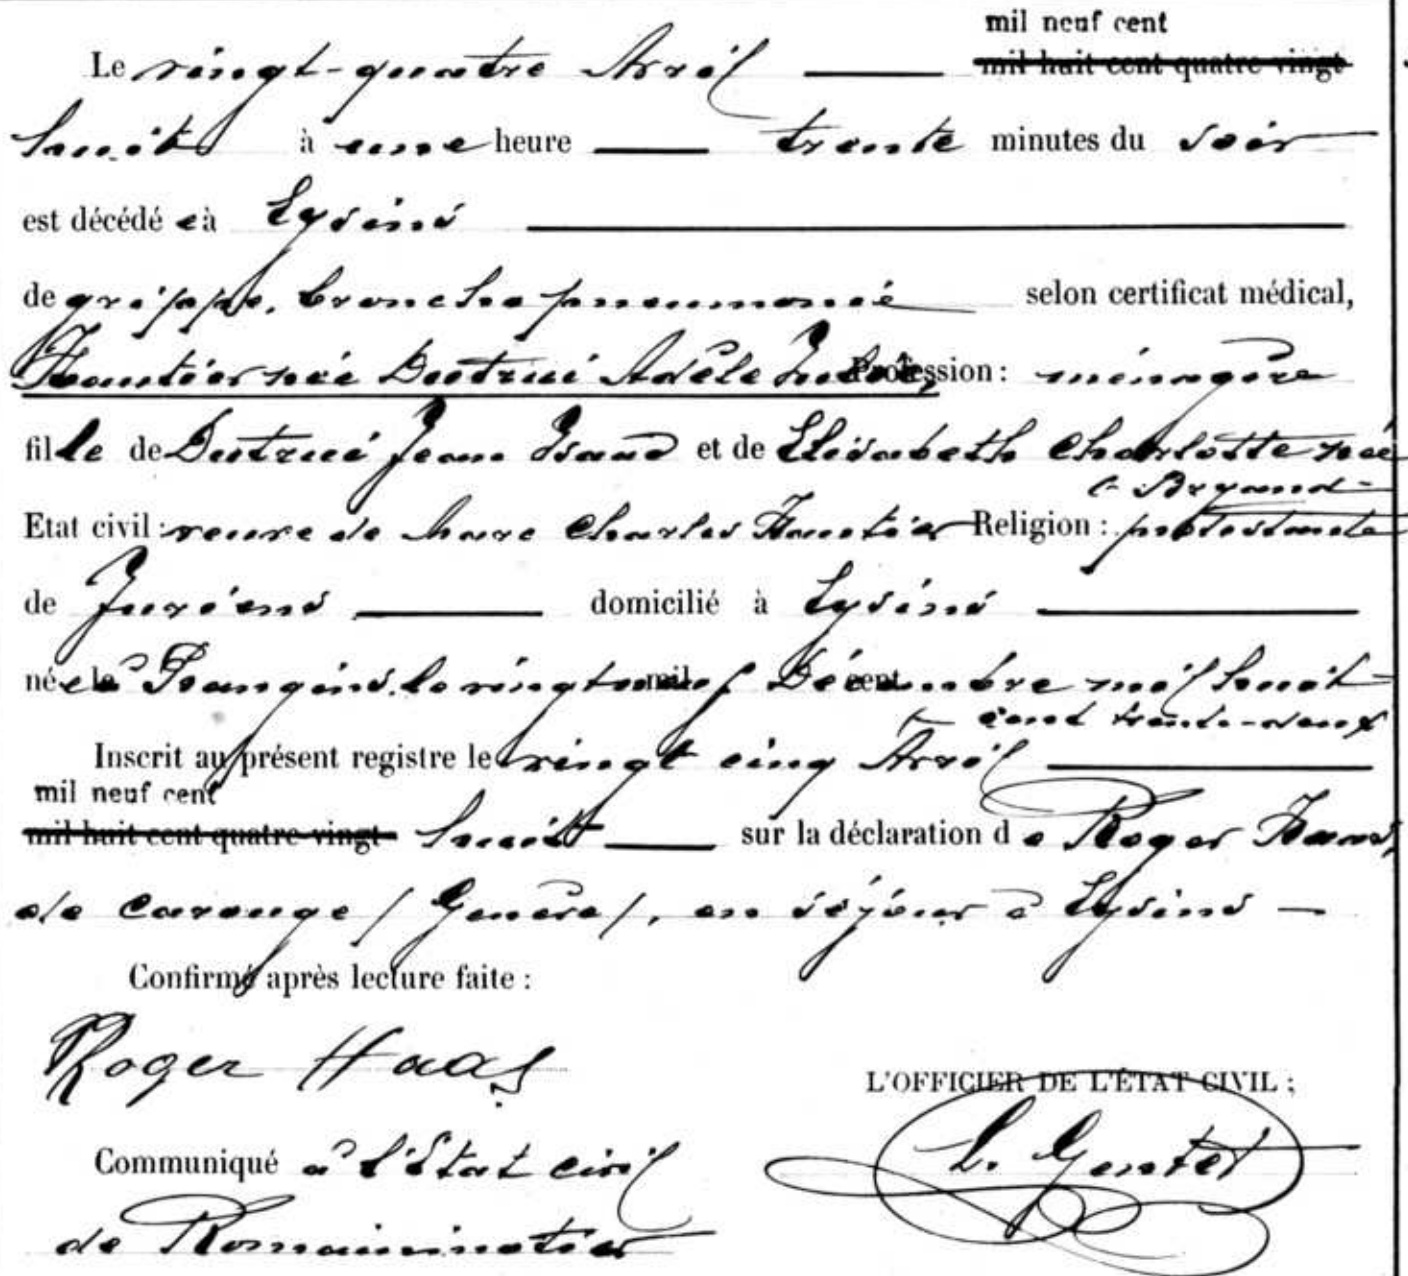 mil neuf cent
Le vingt-quatre Avril mil huit cent quatre-vingt
huit à une heure trente minutes du soir
est décédé e à Eysins
de grippe, broncho pneumonie selon certificat médical,
née Dutruí Adèle Profession : ménagère
fille de Dutruí Jean Isaac et de Elisabeth Charlotte née
Etat civil : veuve de Marc Charles Religion : protestante
de Juriens domicilié à Eysins
né e à Prangins, le vingt neuf Décembre mil huit
cent trente-deux
Inscrit au présent registre le vingt cinq Avril
mil neuf cent
mil huit cent quatre-vingt huit sur la déclaration d e Roger Haas,
de Carouge / Genève /, en séjour à Eysins
Confirmé après lecture faite :
Roger Haas
L'OFFICIER DE L'ÉTAT CIVIL :
Communiqué à l'Etat civil
de Romainmotier